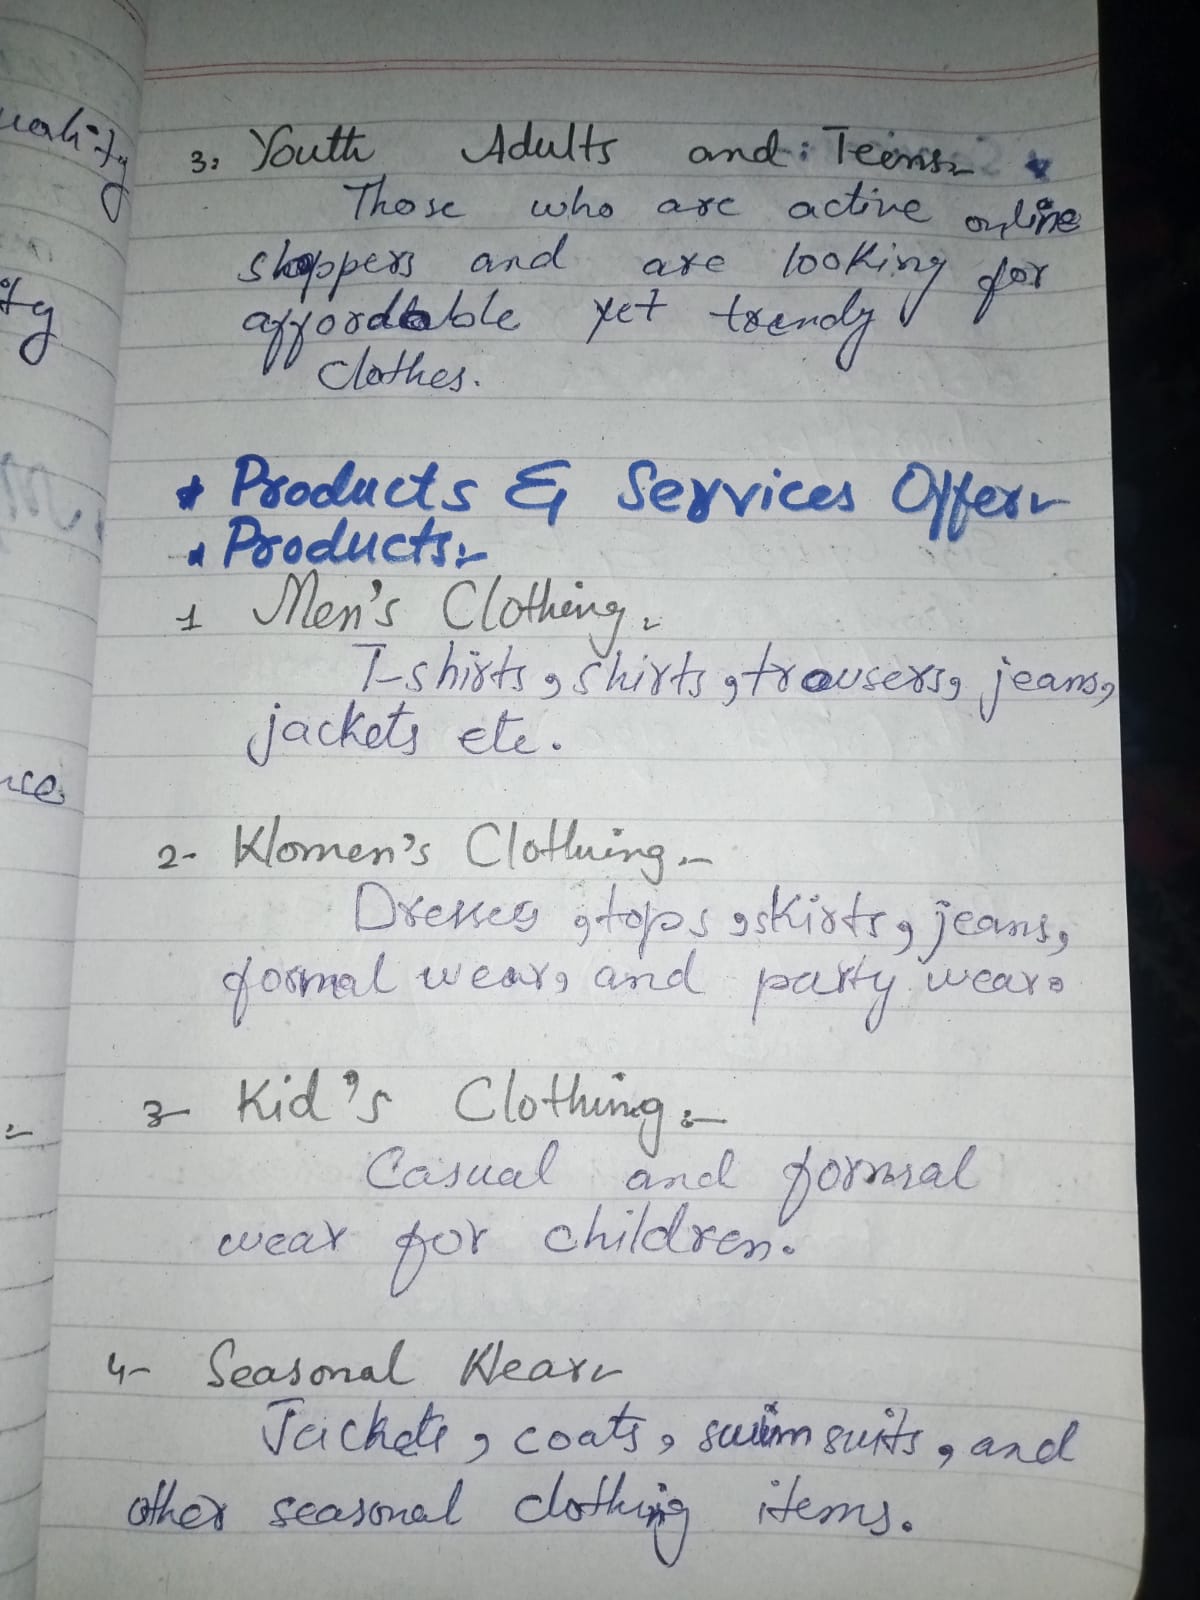 3: Youth Adults and: Teens:-
Those who are active online
shoppers and are looking for
affordable yet trendy
clothes.
* Products & Services Offer:-
* Products:-
1 Men's Clothing:-
T-shirts, shirts, trousers, jeans,
jackets etc.
2- Women's Clothing:-
Dresses, tops, skirts, jeans,
formal wear, and party wear.
3- Kid's Clothing:-
Casual and formal
wear for children.
4- Seasonal Wear:-
Jackets, coats, swimsuits, and
other seasonal clothing items.